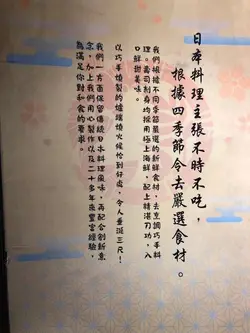 日本料理主張不時不吃，
根據四季節令去嚴選食材。
我們根據不同季節嚴選的新鮮食材，去烹調巧手料
理。壽司刺身均採用極上海鮮，配上精湛刀功，入
口鮮甜美味。
以巧手燒製的爐端燒火候恰到好處，令人垂涎三尺！
我們一方面保留傳統日本料理風味，再配合創新意
念，加上我們用心製作以及二十多年來豐富經驗，
務求滿足你對和食的要求。